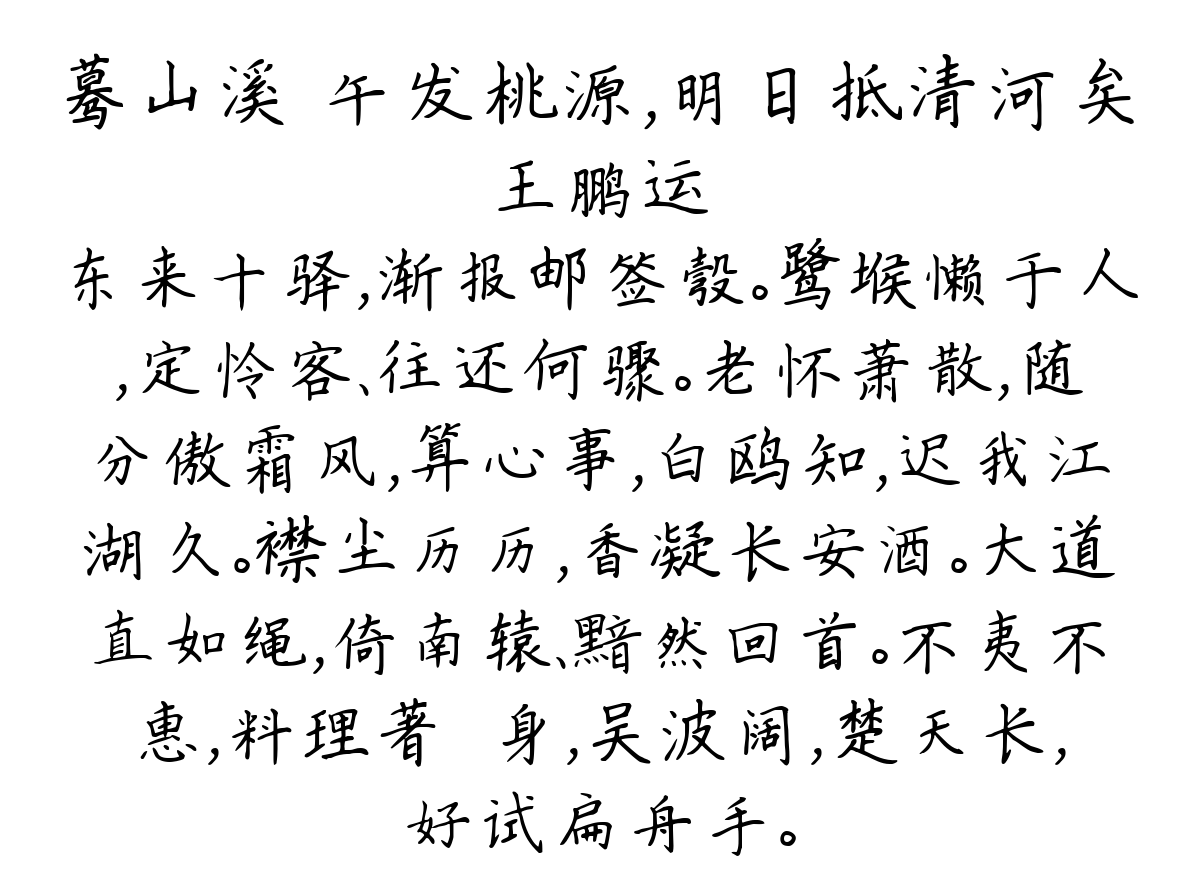 蓦山溪 午发桃源,明日抵清河矣
王鹏运
东来十驿,渐报邮签彀。鹭堠懒于人
,定怜客、往还何骤。老怀萧散,随
分傲霜风,算心事,白鸥知,迟我江
湖久。襟尘历历,香凝长安酒。大道
直如绳,倚南辕、黯然回首。不夷不
惠,料理著 身,吴波阔,楚天长,
好试扁舟手。